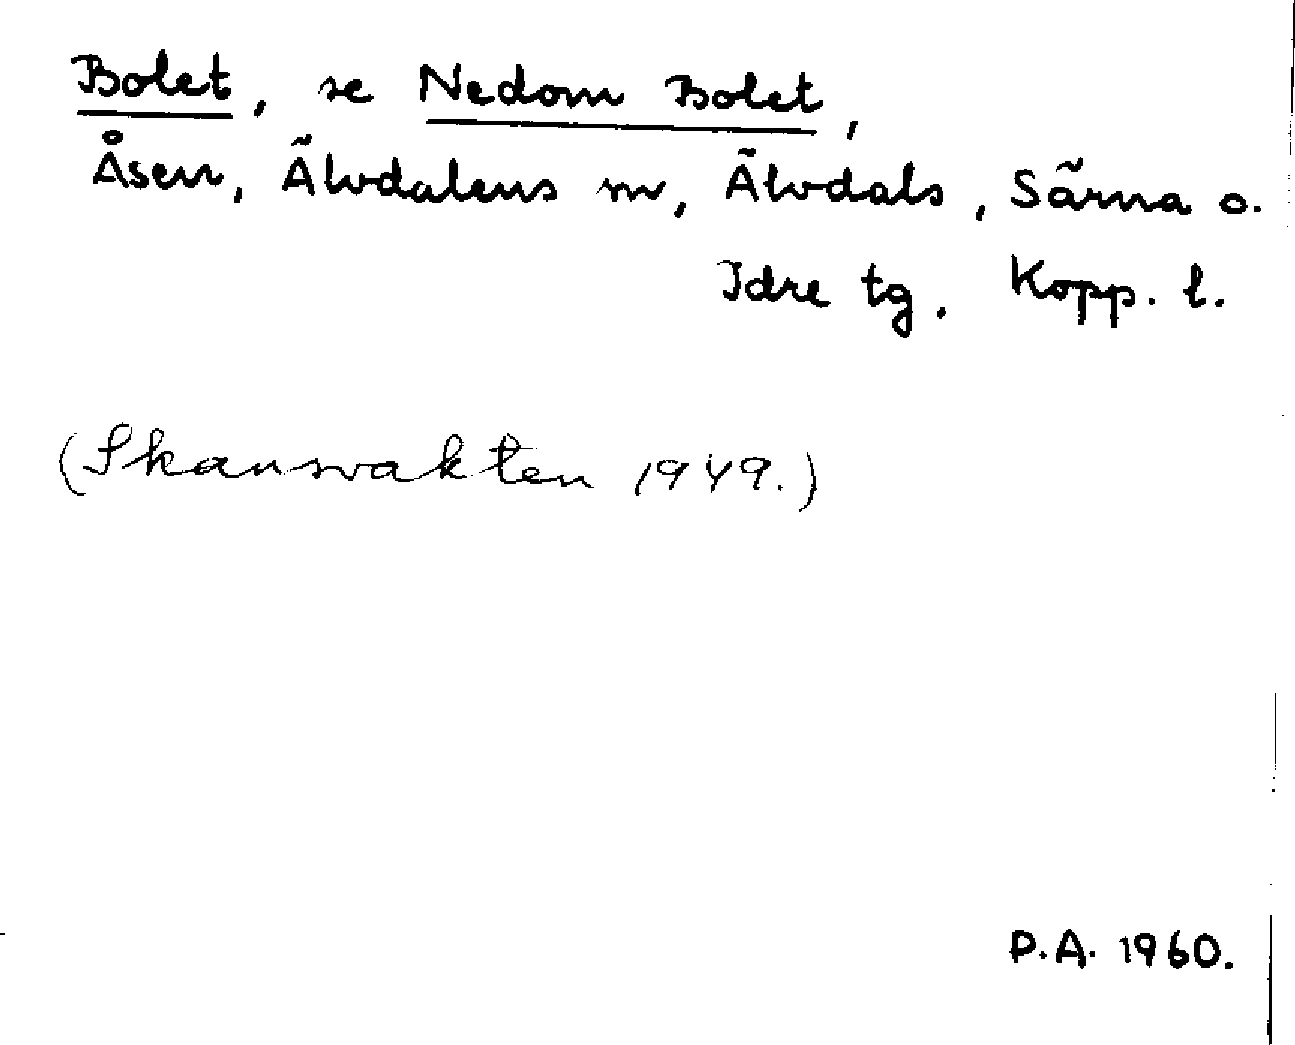 Bolet, se Nedom Bolet,
Åsen, Älvdalens sn, Älvdals, Särna o.
Idre tg, Kopp. l.
(Skansvakten 1949.)
P.A. 1960.